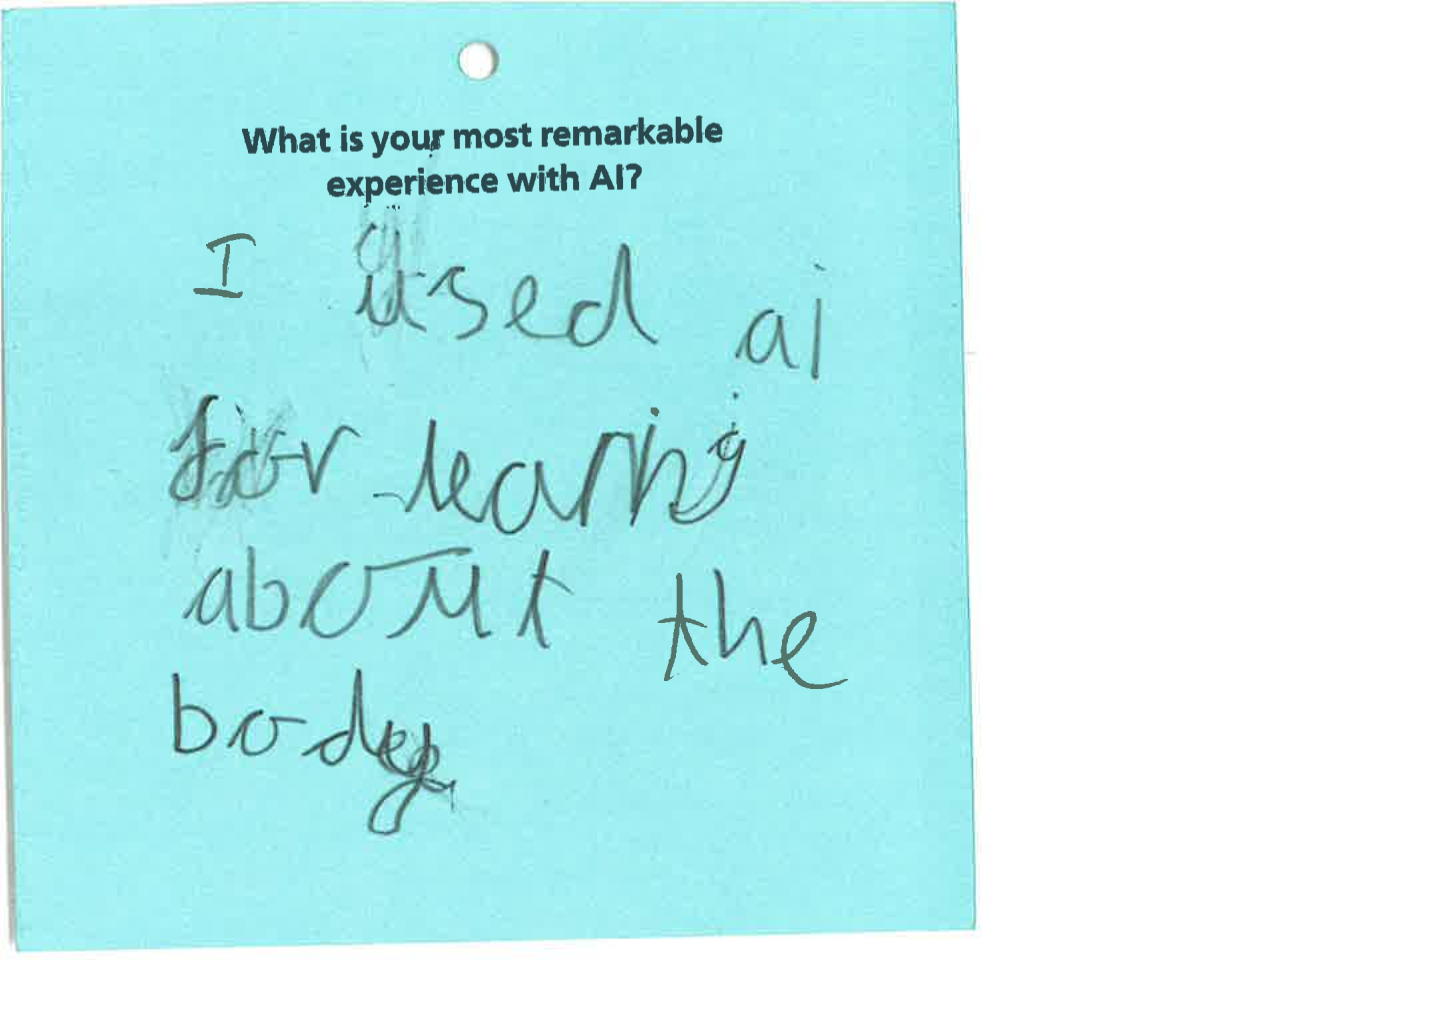 What is your most remarkable
experience with AI?
I used ai
for learning
about the
body